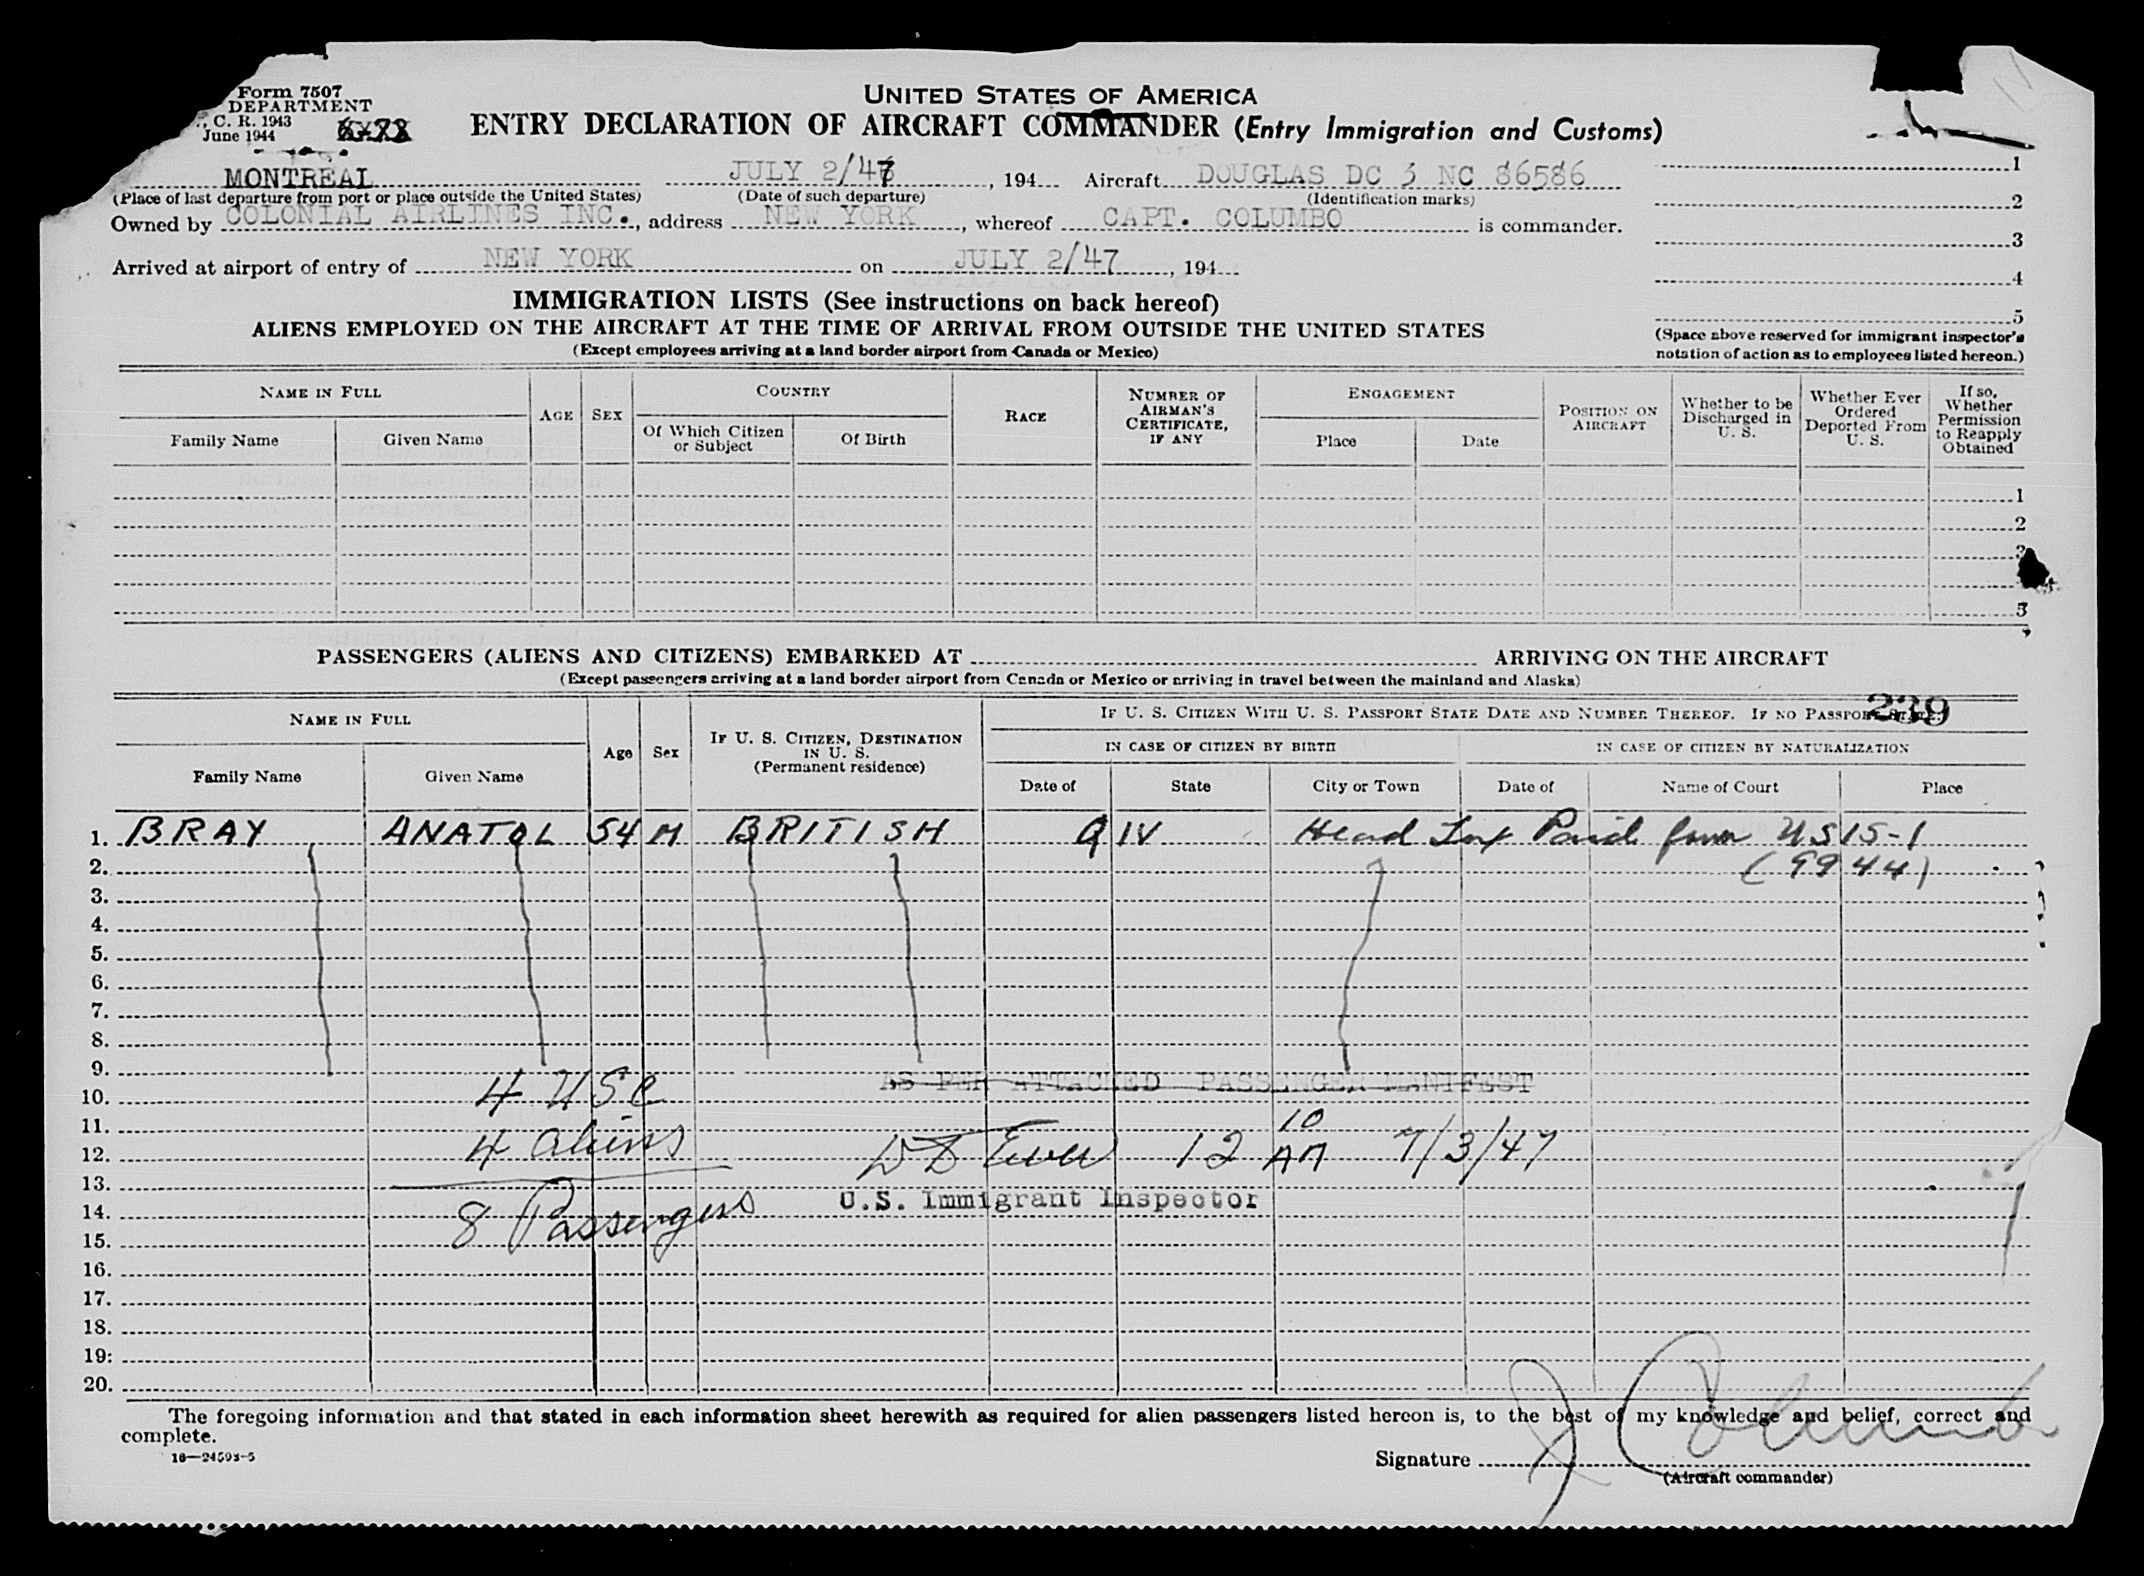 Form 7507
DEPARTMENT
C. R. 1943
June 1944
UNITED STATES OF AMERICA
ENTRY DECLARATION OF AIRCRAFT COMMANDER (Entry Immigration and Customs)
MONTREAL JULY 2/47, 194 Aircraft DOUGLAS DC 3 NC 86586
(Place of last departure from port or place outside the United States) (Date of such departure) (Identification marks)
Owned by COLONIAL AIRLINES INC., address NEW YORK, whereof CAPT. COLUMBO is commander.
Arrived at airport of entry of NEW YORK on JULY 2/47, 194
1
2
3
4
5
(Space above reserved for immigrant inspector's notation of action as to employees listed hereon.)
IMMIGRATION LISTS (See instructions on back hereof)
ALIENS EMPLOYED ON THE AIRCRAFT AT THE TIME OF ARRIVAL FROM OUTSIDE THE UNITED STATES
(Except employees arriving at a land border airport from Canada or Mexico)
NAME IN FULL
Family Name
Given Name
AGE
SEX
COUNTRY
Of Which Citizen or Subject
Of Birth
RACE
NUMBER OF AIRMAN'S CERTIFICATE, IF ANY
ENGAGEMENT
Place
Date
POSITION ON AIRCRAFT
Whether to be Discharged in U. S.
Whether Ever Ordered Deported From U. S.
If so, Whether Permission to Reapply Obtained
1
2
3
5
PASSENGERS (ALIENS AND CITIZENS) EMBARKED AT ARRIVING ON THE AIRCRAFT
(Except passengers arriving at a land border airport from Canada or Mexico or arriving in travel between the mainland and Alaska)
239
NAME IN FULL
Family Name
Given Name
Age
Sex
IF U. S. CITIZEN, DESTINATION IN U. S.
(Permanent residence)
IF U. S. CITIZEN WITH U. S. PASSPORT STATE DATE AND NUMBER THEREOF. IF NO PASSPORT STATE:
IN CASE OF CITIZEN BY BIRTH
IN CASE OF CITIZEN BY NATURALIZATION
Date of
State
City or Town
Date of
Name of Court
Place
1. BRAY ANATOL 54 M BRITISH Q IV Head Tax Paid from US 15-1
2. (9944)
3.
4.
5.
6.
7.
8.
9. AS PER ATTACHED PASSENGER MANIFEST
10. 4 USC
11. 10
12. 4 aliens 12 AM 7/3/47
13. U.S. Immigrant Inspector
14. 8 Passengers
15.
16.
17.
18.
19.
20.
The foregoing information and that stated in each information sheet herewith as required for alien passengers listed hereon is, to the best of my knowledge and belief, correct and
complete.
16—24593-5
Signature J Columbo
(Aircraft commander)